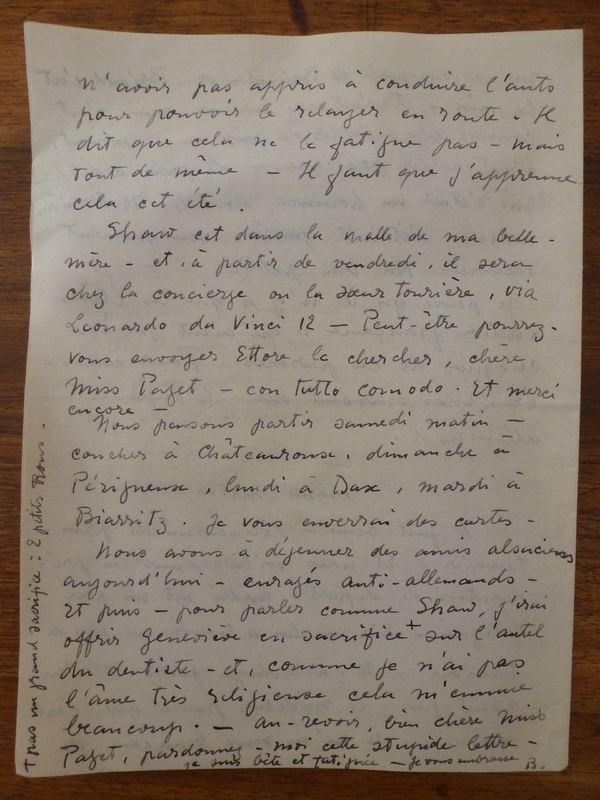 n'avoir pas appris à conduire l'auto
pour pouvoir le relayer en route. Il
dit que cela ne le fatigue pas - mais
tout de même - Il faut que j'apprenne
cela cet été.
Shaw est dans la malle de ma belle-
mère - et, à partir de vendredi, il sera
chez la concierge ou la sœur tourière, via
Leonardo da Vinci 12 - Peut-être pourrez-
vous envoyer Ettore le chercher, chère
Miss Paget - con tutto comodo. Et merci
encore
Nous pensons partir samedi matin -
coucher à Châteauroux, dimanche à
Périgueux, lundi à Dax, mardi à
Biarritz. Je vous enverrai des cartes -
Nous avons à déjeuner des amis alsaciens
aujourd'hui - enragés anti-allemands -
Et puis - pour parler comme Shaw, j'irai
offrir Geneviève en sacrifice+ sur l'autel
du dentiste - et, comme je n'ai pas
l'âme très religieuse cela m'ennuie
beaucoup. - au-revoir, bien chère Miss
Paget, pardonnez-moi cette stupide lettre -
je suis bête et fatiguée - Je vous embrasse B.
+ pas un grand sacrifice : 2 petits trous.